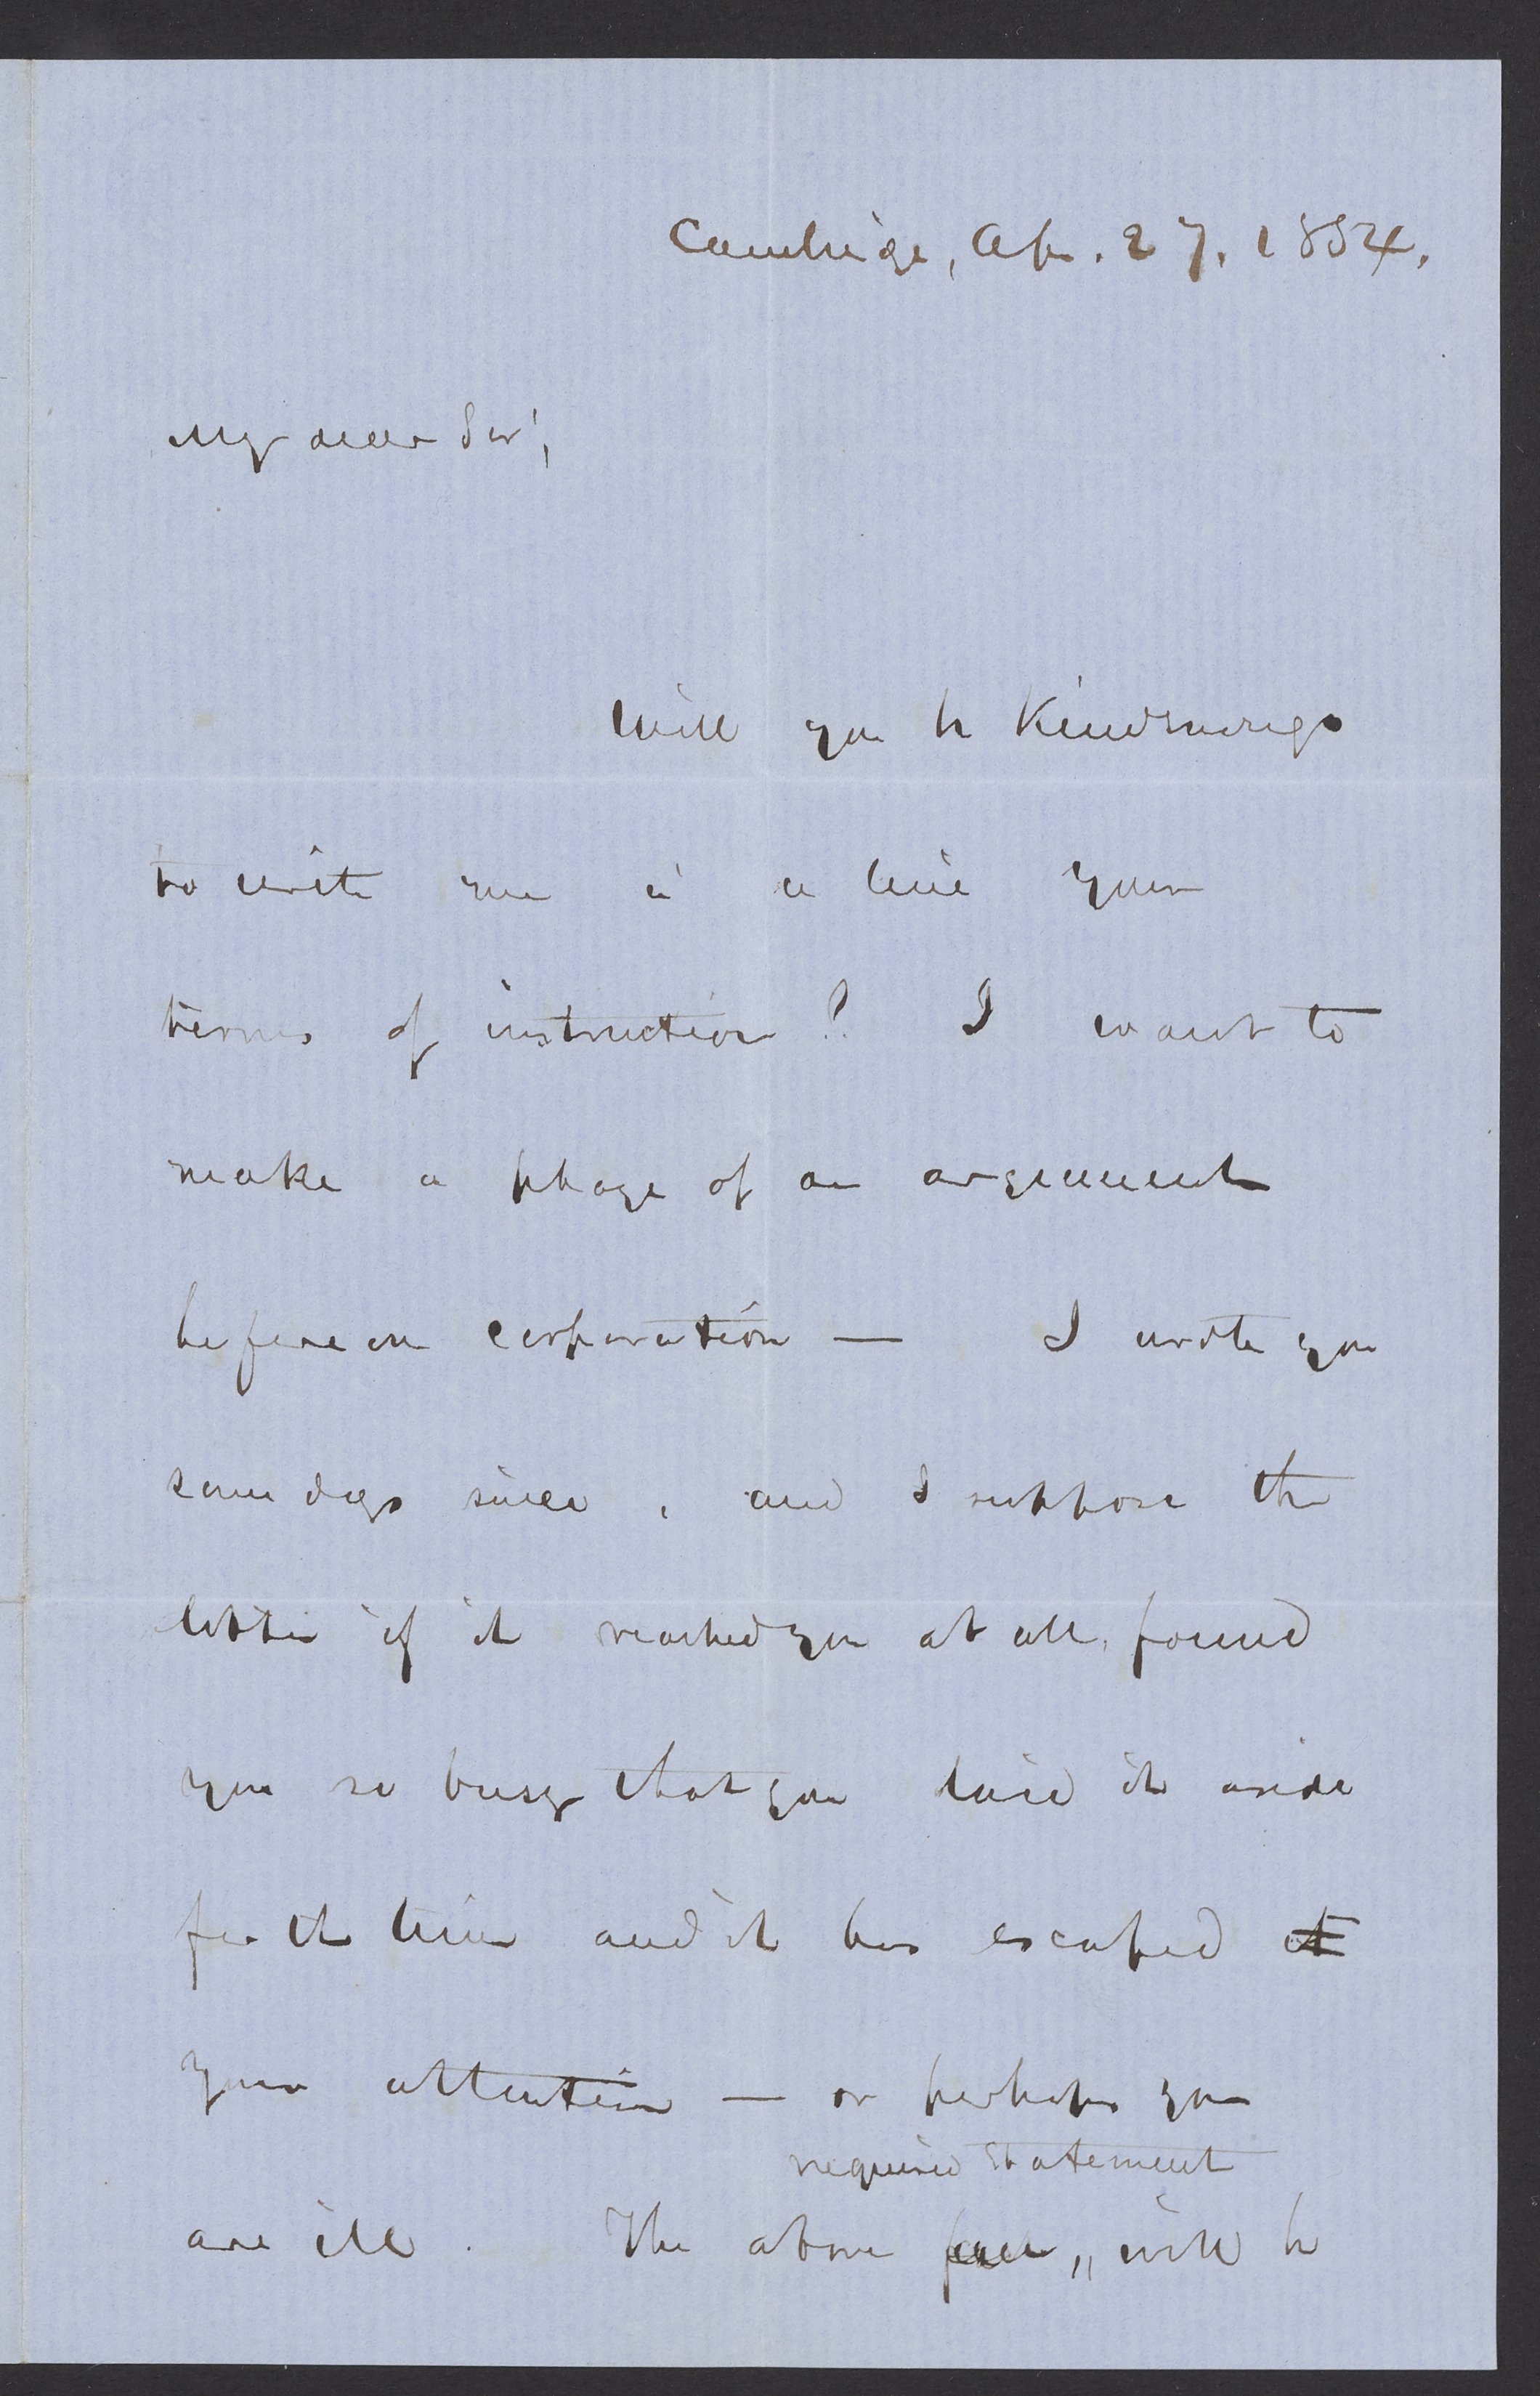 Cambridge, Ap. 27. 1854.
My dear Sir,
Will you be kind enough
to write me in a line your
terms of instruction? I want to
make a phase of an argument
before our corporation — I wrote you
some days since, and I suppose the
letter if it reached you at all, found
you so busy that you laid it aside
for the time and it has escaped it
your attention — or perhaps you
required statement
are ill. The above will be